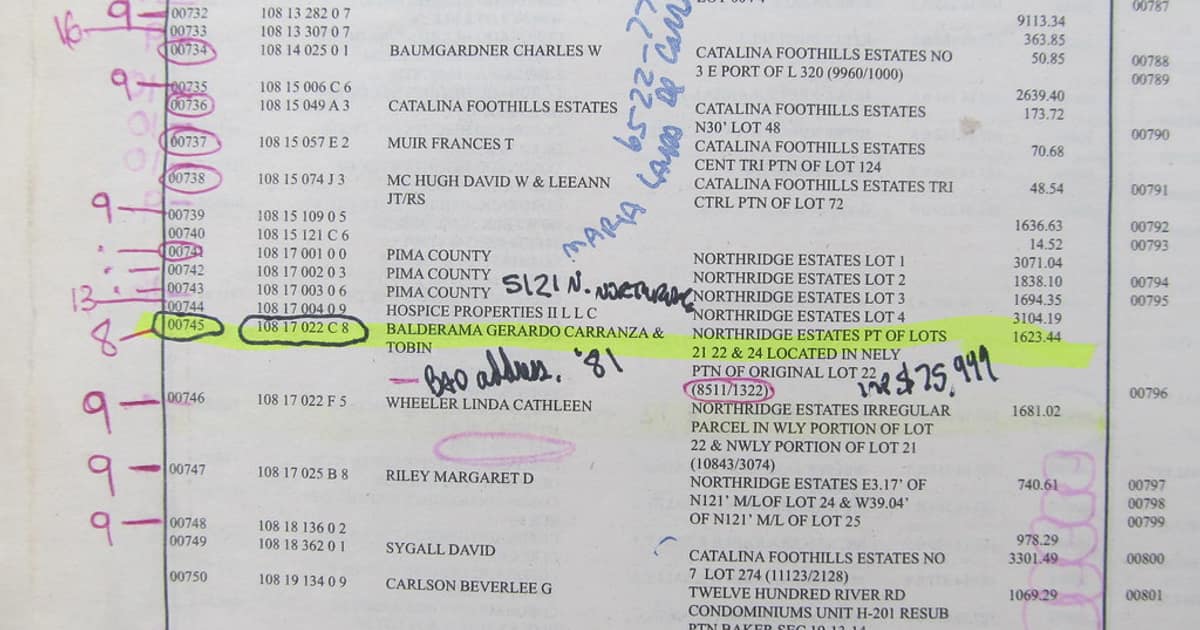 00787
00732 108 13 282 0 7
9113.34
16 9 00733 108 13 307 0 7
363.85
00734 108 14 025 0 1 BAUMGARDNER CHARLES W CATALINA FOOTHILLS ESTATES NO 50.85 00788
3 E PORT OF L 320 (9960/1000)
00789
9 00735 108 15 006 C 6
2639.40
00736 108 15 049 A 3 CATALINA FOOTHILLS ESTATES CATALINA FOOTHILLS ESTATES 173.72
N30' LOT 48
00790
00737 108 15 057 E 2 MUIR FRANCES T CATALINA FOOTHILLS ESTATES 70.68
CENT TRI PTN OF LOT 124
00738 108 15 074 J 3 MC HUGH DAVID W & LEEANN CATALINA FOOTHILLS ESTATES TRI 48.54 00791
JT/RS CTRL PTN OF LOT 72
9 00739 108 15 109 0 5
1636.63 00792
00740 108 15 121 C 6
14.52 00793
MARIA
00741 108 17 001 0 0 PIMA COUNTY NORTHRIDGE ESTATES LOT 1 3071.04
00742 108 17 002 0 3 PIMA COUNTY NORTHRIDGE ESTATES LOT 2 1838.10 00794
00743 108 17 003 0 6 PIMA COUNTY 5121 N. NORTHRIDGE NORTHRIDGE ESTATES LOT 3 1694.35 00795
13 00744 108 17 004 0 9 HOSPICE PROPERTIES II L L C NORTHRIDGE ESTATES LOT 4 3104.19
8 00745 108 17 022 C 8 BALDERAMA GERARDO CARRANZA & NORTHRIDGE ESTATES PT OF LOTS 1623.44
TOBIN 21 22 & 24 LOCATED IN NELY
PTN OF ORIGINAL LOT 22
BAD address. '81
(8511/1322) $75,999
00796
9 00746 108 17 022 F 5 WHEELER LINDA CATHLEEN NORTHRIDGE ESTATES IRREGULAR 1681.02
PARCEL IN WLY PORTION OF LOT
22 & NWLY PORTION OF LOT 21
(10843/3074)
9 00747 108 17 025 B 8 RILEY MARGARET D NORTHRIDGE ESTATES E3.17' OF 740.61 00797
N121' M/LOF LOT 24 & W39.04' 00798
OF N121' M/L OF LOT 25 00799
9 00748 108 18 136 0 2
978.29
00749 108 18 362 0 1 SYGALL DAVID CATALINA FOOTHILLS ESTATES NO 3301.49 00800
7 LOT 274 (11123/2128)
00750 108 19 134 0 9 CARLSON BEVERLEE G TWELVE HUNDRED RIVER RD 1069.29 00801
CONDOMINIUMS UNIT H-201 RESUB